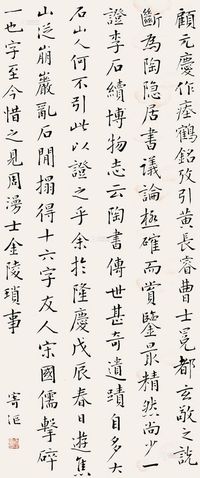 顧元慶作瘞鶴銘攷引黃長睿曹士冕都玄敬之説
斷為陶隱居書議論極確而賞鑒最精然尚少一
證李石續博物志云陶書傳世甚奇遺蹟自多大
石山人何不引此以證之乎余於隆慶戊辰春日遊焦
山從崩巖亂石間搨得十六字友人宋國儒擊碎
一也字至今惜之見周漫士金陵瑣事
寄漚